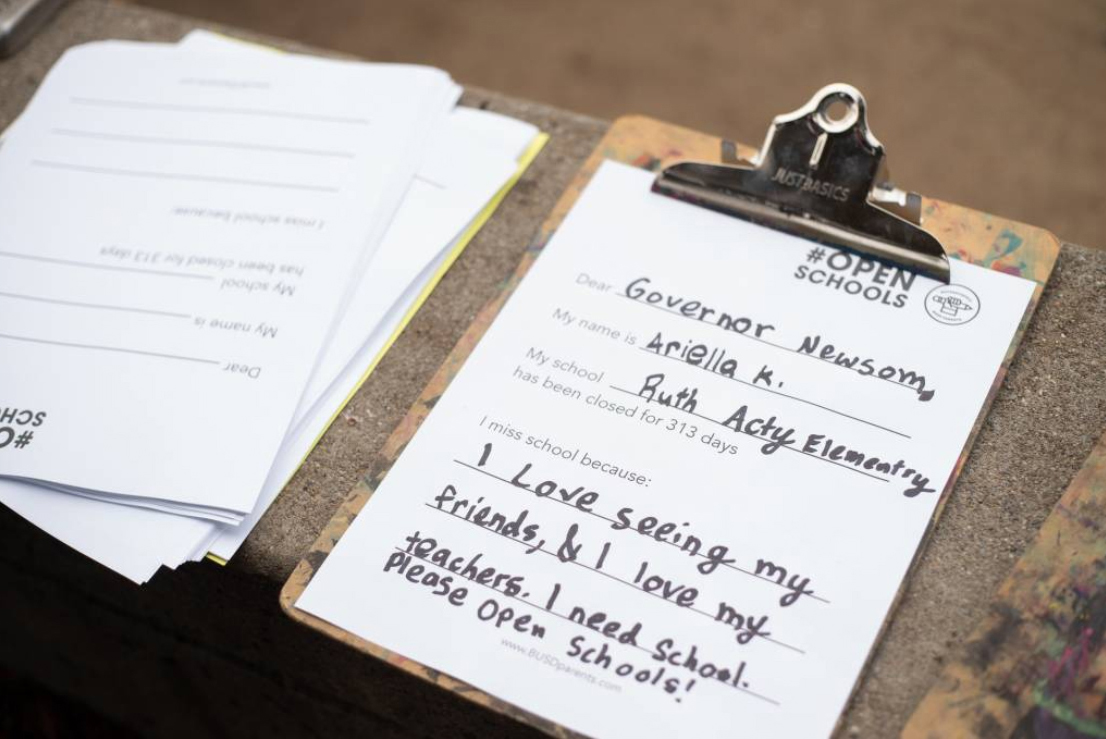 Dear
My name is
My school
has been closed for 313 days
I miss school because:
#O
SCHO
JUSTBASICS
#OPEN
SCHOOLS
Dear Governor Newsom,
My name is Ariella K.
My school Ruth Acty Elementry
has been closed for 313 days
I miss school because:
I Love seeing my
friends, & I love my
teachers. I need School.
Please Open Schools!
www.BUSDparents.com